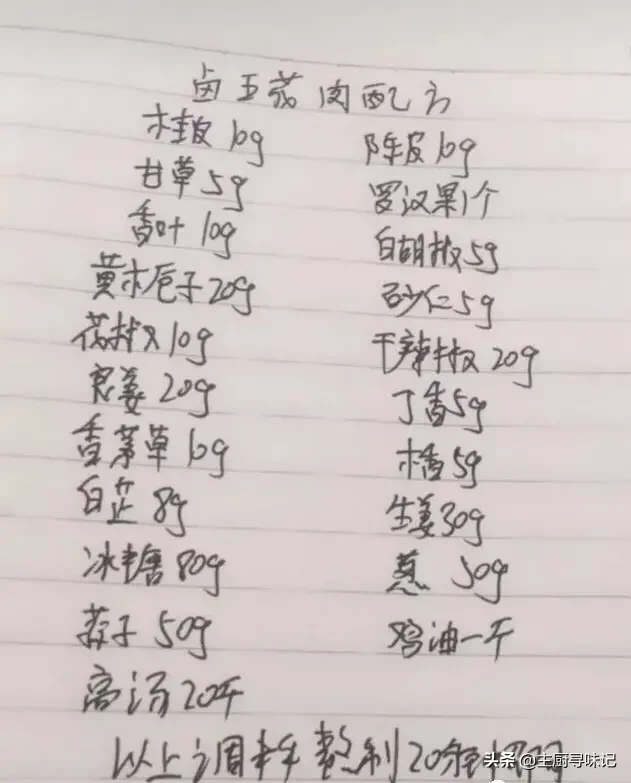 卤五花肉配方
桂皮 10g 陈皮 10g
甘草 5g 罗汉果1个
香叶 10g 白胡椒5g
黄栀子 20g 砂仁5g
花椒 10g 干辣椒 20g
良姜 20g 丁香5g
香茅草 10g 木香5g
白芷 8g 生姜30g
冰糖 80g 葱 50g
子 50g 鸡油一斤
高汤 20斤
以上调料 制20
头条 @主厨寻味记